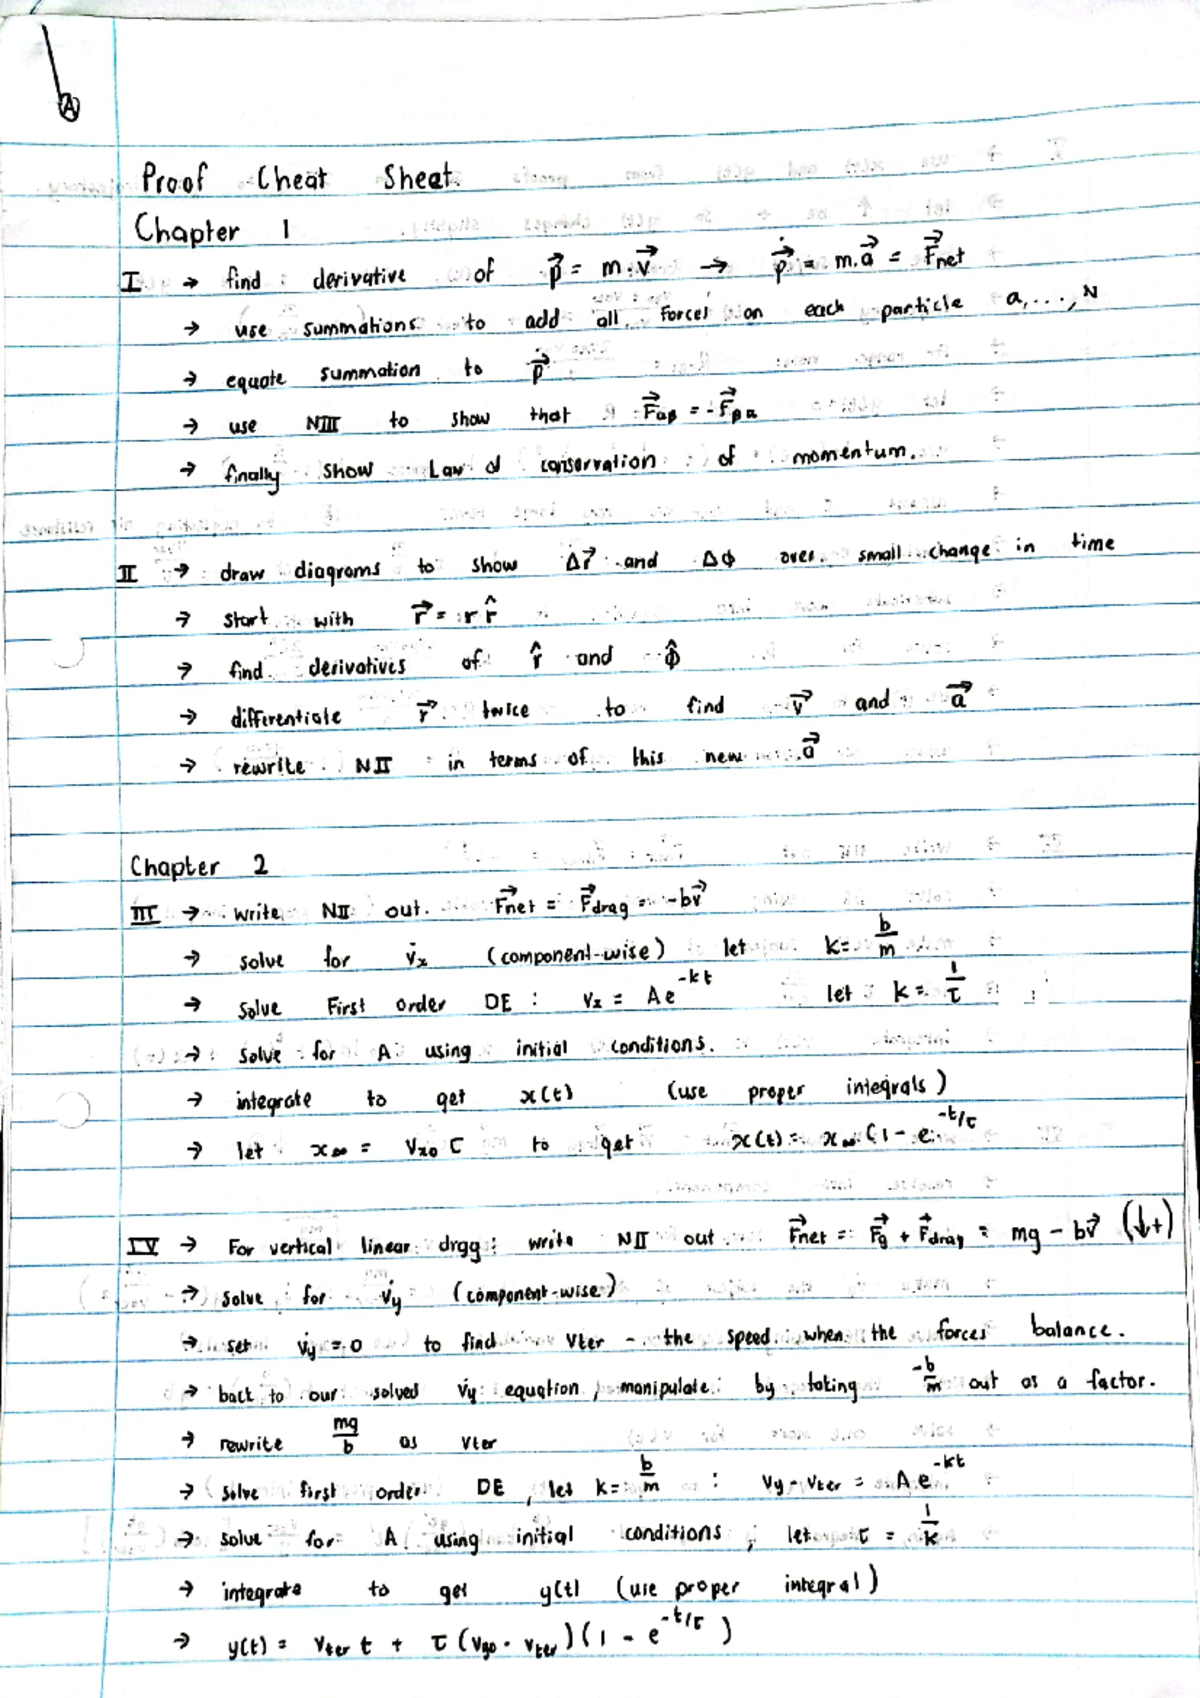 A
Proof Cheat Sheet.
Chapter 1
I → find derivative of p⃗ = m.v⃗ → p⃗̇ = m.a⃗ = F⃗net
→ use summations to add all Forces on each particle a,...,N
→ equate summation to p⃗̇
→ use NIII to show that F⃗αβ = -F⃗βα
→ finally show Law of conservation of momentum.
II → draw diagrams to show Δr⃗ and Δϕ over small change in time
→ start with r⃗ = r r̂
→ find derivatives of r̂ and ϕ̂
→ differentiate r⃗ twice to find v⃗ and a⃗
→ rewrite NII in terms of this new a⃗
Chapter 2
III → write NII out. F⃗net = F⃗drag = -bv⃗
→ solve for v̇x (component-wise) let k = b/m
→ solve First order DE : vx = Ae^-kt let k = 1/τ
→ solve for A using initial conditions.
→ integrate to get x(t) (use proper integrals)
→ let x∞ = vx0 τ to get x(t) = x∞(1 - e^-t/τ
IV → For vertical linear drag: write NII out. F⃗net = F⃗g + F⃗drag = mg - bv⃗ (↓+)
→ solve for v̇y (component-wise)
→ set v̇y = 0 to find vter - the speed when the forces balance.
→ back to our solved v̇y equation, manipulate by taking -b/m out as a factor.
→ rewrite mg/b as vter
→ solve first order DE, let k = b/m : vy - vter = Ae^-kt
→ solve for A using initial conditions, let τ = 1/k
→ integrate to get y(t) (use proper integral)
→ y(t) = vter t + τ(vyo - vter)(1 - e^-t/τ)